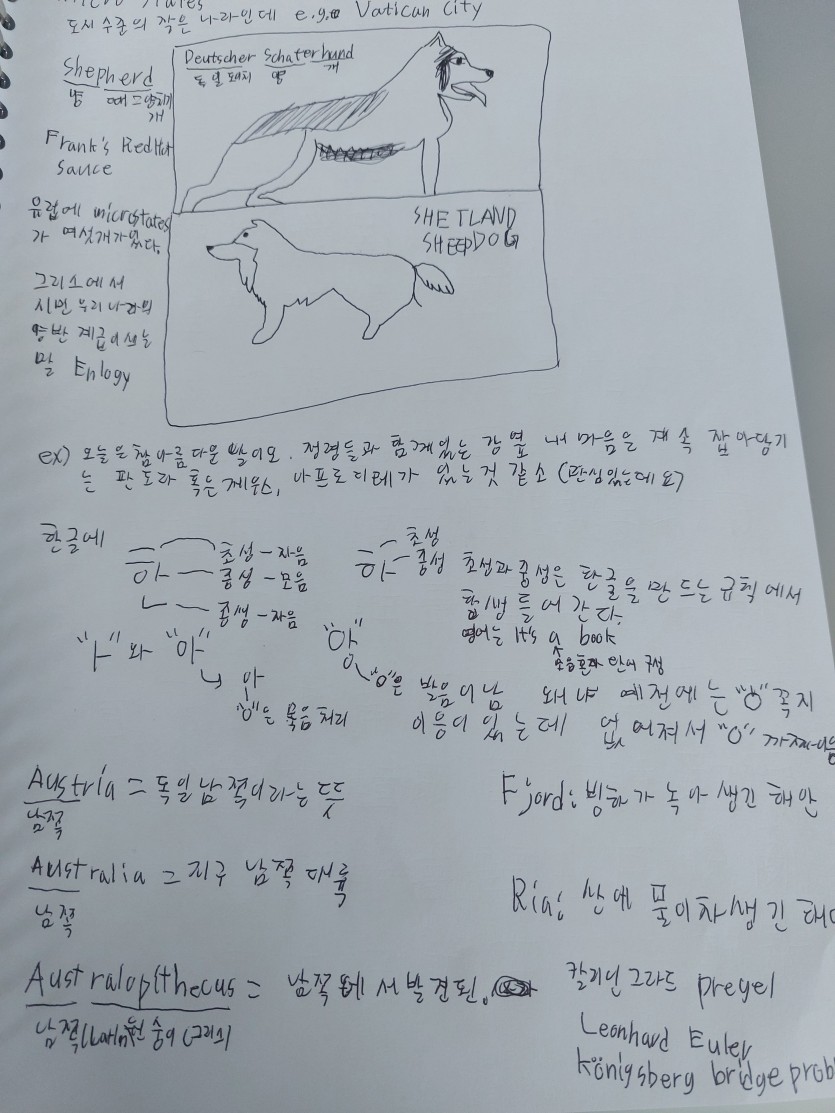 도시 수준의 작은 나라인데 e.g. Vatican City
Shepherd
양
개
Deutscher Schaterhund
독일 양 개
Frank's RedHot
sauce
유럽에 microstates
가 여섯개가 있다.
SHETLAND
SHEEPDOG
그리스에서
시민 우리나라의
양반 계급이 쓰는
말 Enlogy
ex) 오늘은 참 아름다운 날이오. 정령들과 함께있는 강 옆 내 마음을 계속 잡아당기
는 판도라 혹은 제우스, 아프로디테가 있는것 같소 (관심있는데요)
한글에
하 초성 - 자음
중성 - 모음
종성 - 자음
하 초성
중성
초성과 중성은 한글을 만드는 규칙에서
항상 들어간다.
영어는 It's a book
모음혼자 단어 구성
"ㅏ"와 "아"
아
"ㅇ"은 묵음처리
"앙"
"ㅇ"은 발음이 남 왜냐 예전에는 "ㆁ" 꼭지
이응이 있는데 없어져서 "ㅇ"
Austria = 독일 남쪽이라는 뜻
남쪽
Fjord: 빙하가 녹아 생긴 해안
Australia = 지구 남쪽 대륙
남쪽
Ria: 산에 물이차 생긴
Australopithecus = 남쪽에서 발견된.
남쪽(Latin) 원숭이 (그리스)
칼리닌그라드 pregel
Leonhard Euler
Königsberg bridge prob